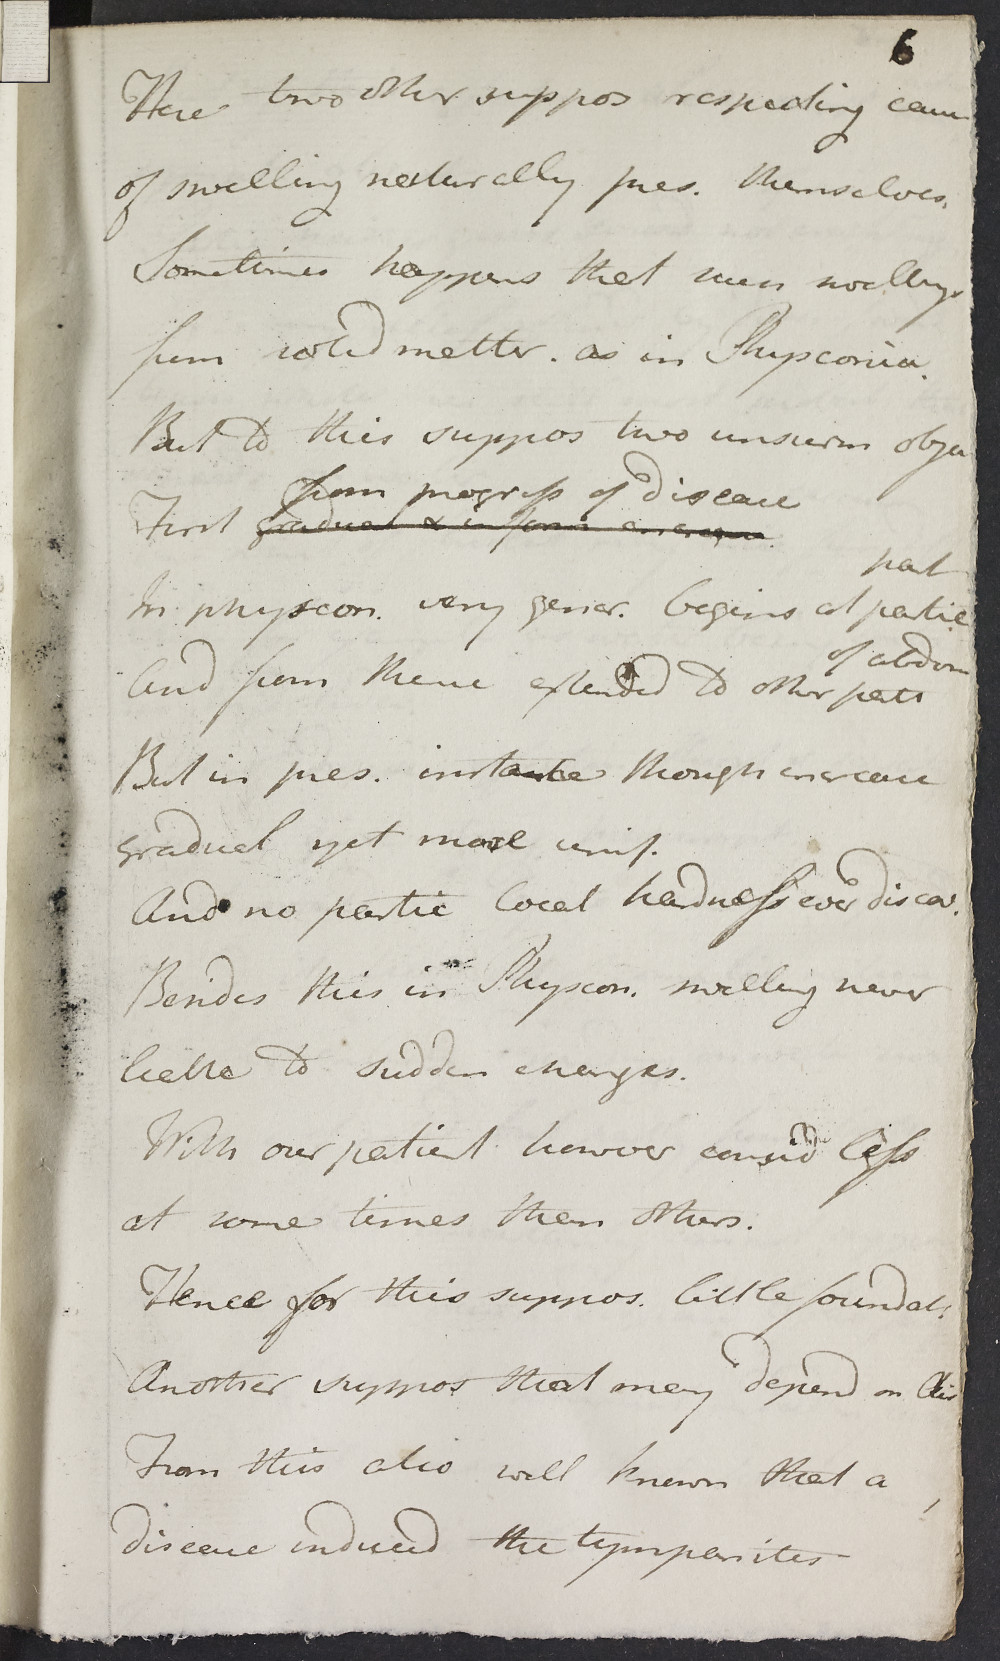 6
Here two other suppos respecting caus
of swelling naturally pres. themselves.
Sometimes happens that such swellings
from solid matter. as in Physconia.
But to this suppos two unsurm objec
from progress of disease
First gradual & uniform increase.
part
In physcon. very gener. begins at partic
of abdom
And from thence extended to other parts
But in pres. instance though increase
gradual yet more unif.
And no partic local hardness ever discov.
Besides this in Physcon. swelling never
liable to sudden changes.
With our patient however consid less
at some times than others.
Hence for this suppos. little foundat:
Another suppos that may depend on Air
From this also well known that a
disease induced the tympanites